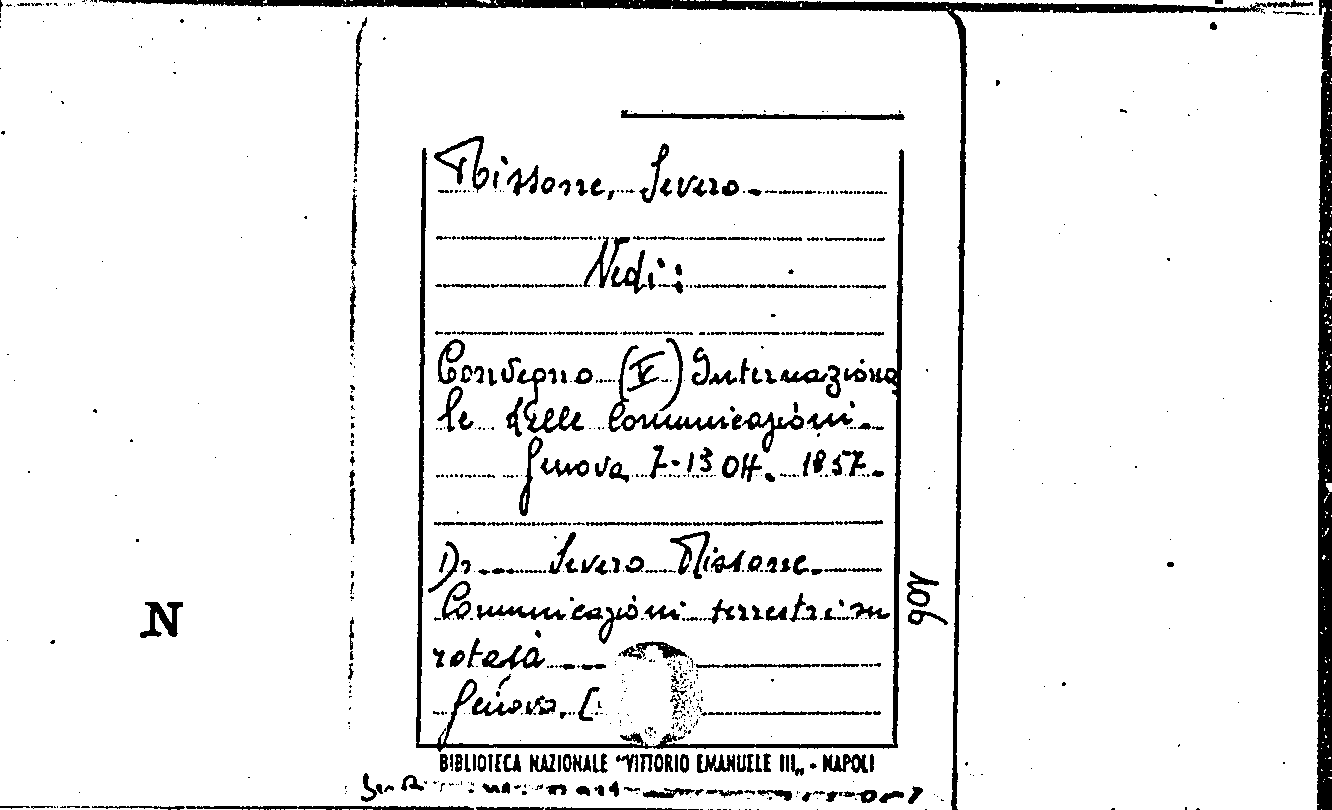 Rissone, Severo.
Vedi:
Convegno (V) Internaziona
le delle Comunicazioni.
Genova 7-13 Ott. 1957.
Dr. ... Severo Rissone.
Comunicazioni terrestri su
rotaia ...
Genova, [
BIBLIOTECA NAZIONALE "VITTORIO EMANUELE III„ - NAPOLI
N
106